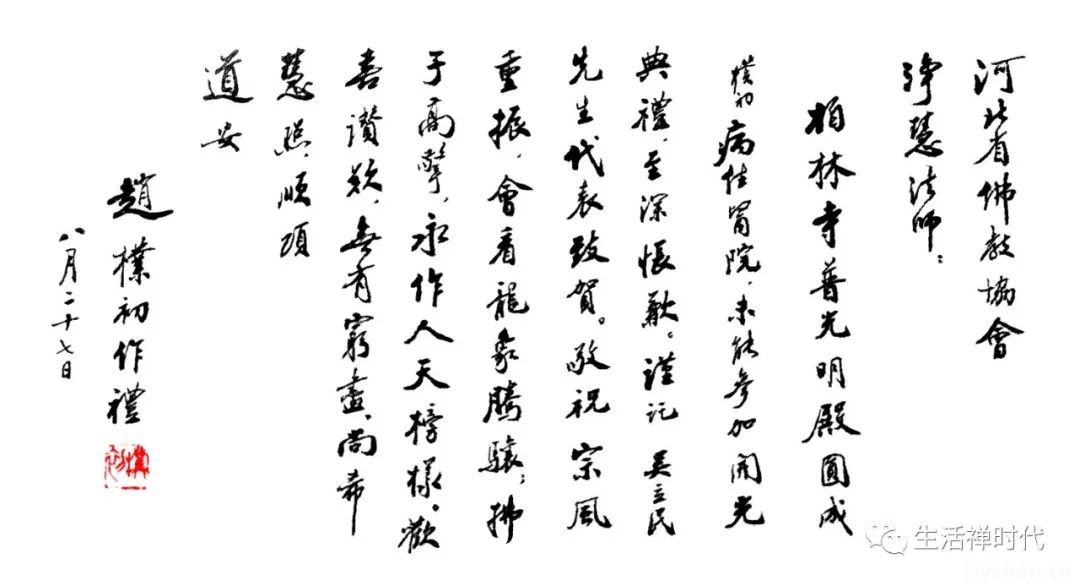 河北省佛教協會
淨慧法師：
柏林寺普光明殿圓成
樸初病住醫院，未能參加開光
典禮，至深悵歉。謹託 吳立民
先生代表致賀。敬祝 宗風
重振，會看龍象騰驤；拂
子高擎，永作人天榜樣。歡
喜讚歎，無有窮盡，尚希
慧照，順頌
道安
趙樸初作禮
八月二十七日
樸初
生活禅时代
Livchan.cn